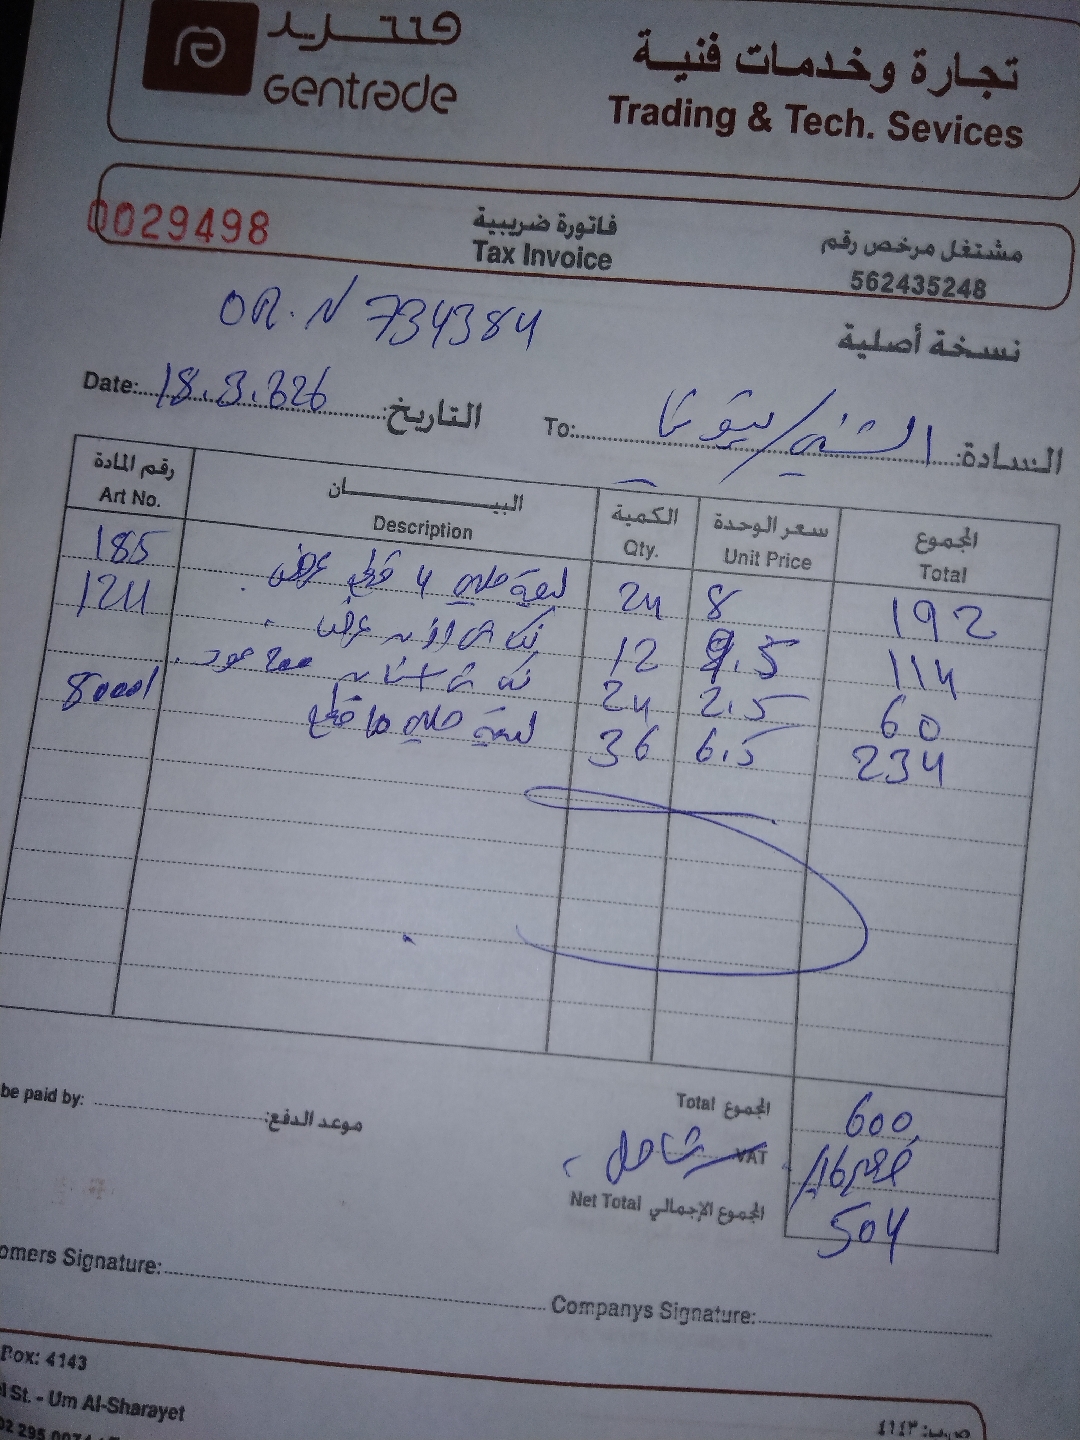 Gentrade
تجارة وخدمات فنية
Trading & Tech. Sevices
0029498
فاتورة ضريبية
Tax Invoice
مشتغل مرخص رقم
562435248
OR. N 734384
نسخة أصلية
Date: 18.3.226 التاريخ:
To: السادة:
رقم المادة البيـــــــــان الكمية سعر الوحدة المجموع
Art No. Description Qty. Unit Price Total
185 ليفة 4 قطع عرض 24 8 192
1211 عرض 12 9.5 114
عود 24 2.5 60
80001 ليفة 10 قطع 36 6.5 234
Total المجموع 600
VAT شامل خصم 16%
Net Total المجموع الإجمالي 504
be paid by: موعد الدفع:
omers Signature:
Companys Signature:
Box: 4143
l St. - Um Al-Sharayet
02 295
ص.ب: ٤١٤٣